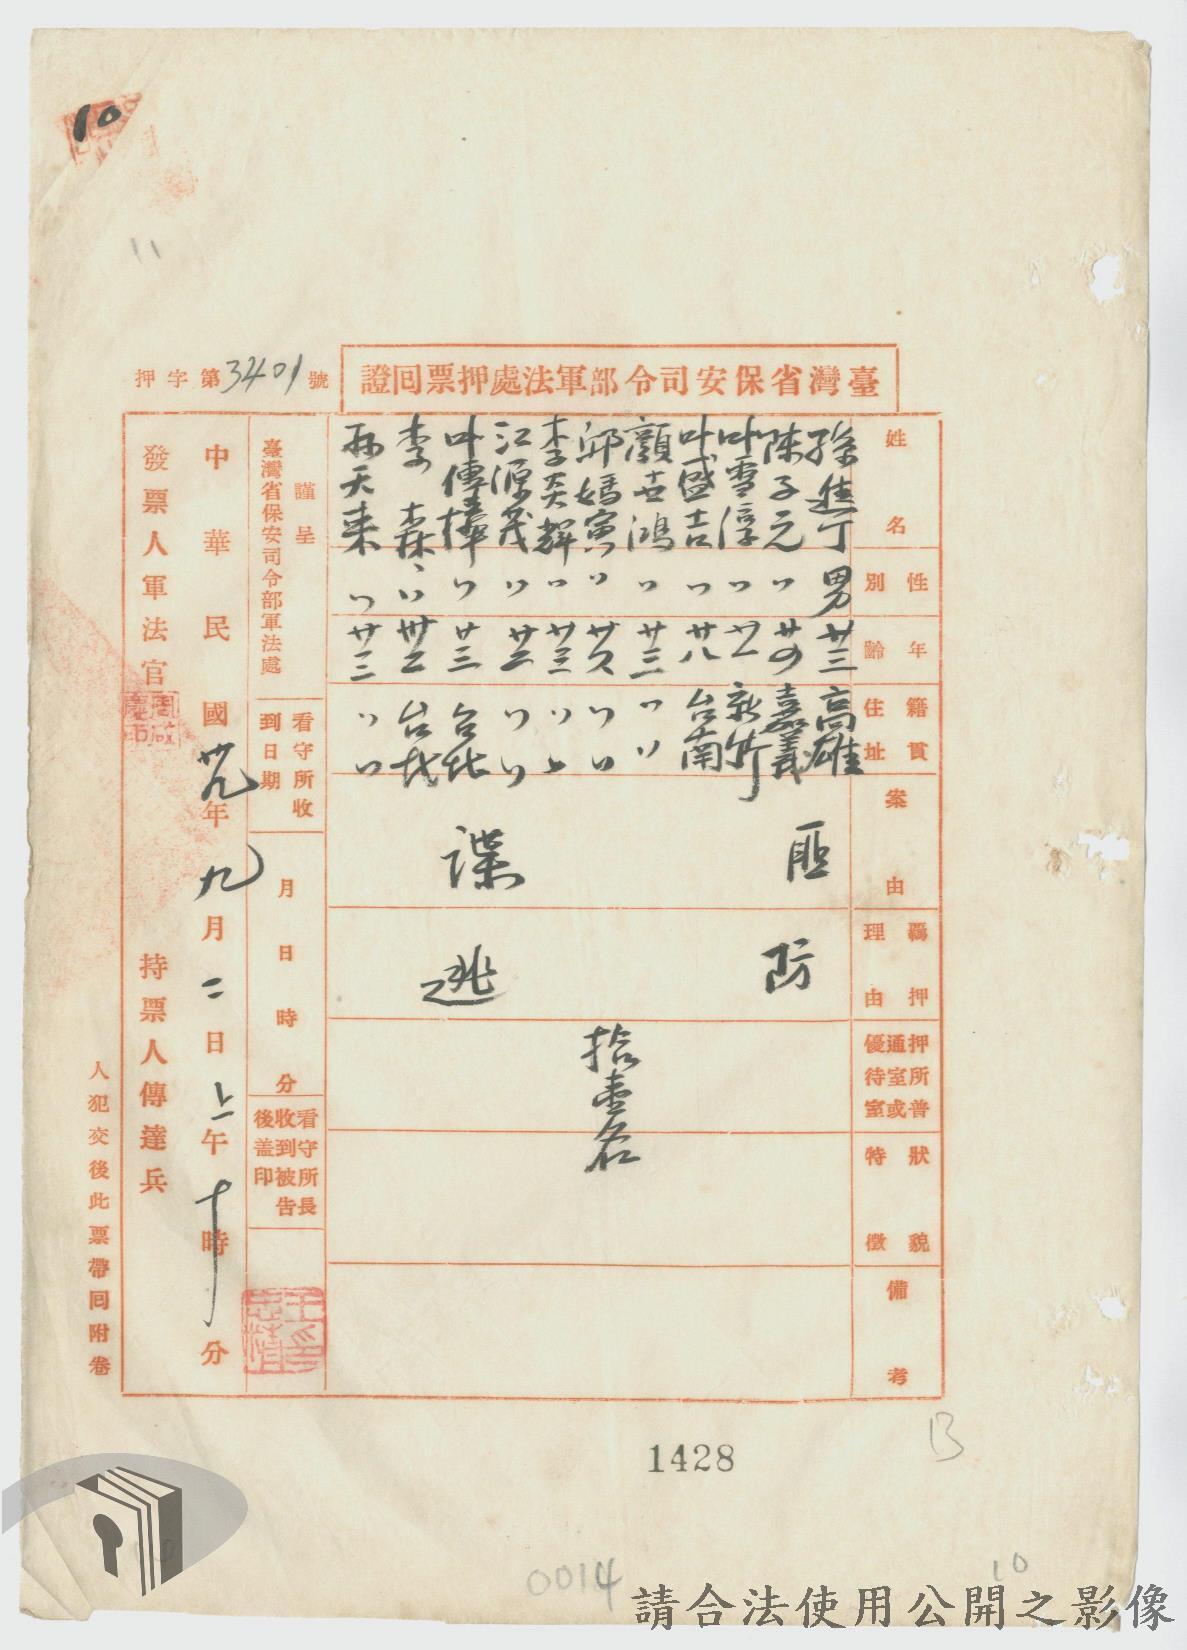 10
11
臺灣省保安司令部軍法處押票囘證
押字第3401號
姓名
性別
年齡
籍貫住址
案由
羈押理由
押所普通室或優待室
狀貌特徵
備考
孫進丁 男 廿三 高雄
陳子元 〃 廿四 嘉義
叶雪淳 〃 廿一 新竹
叶盛吉 〃 廿八 台南
顏世鴻 〃 廿三 〃〃
邱媽寅 〃 〃〃
李炎輝 〃 廿三 〃〃
江源茂 〃 廿二 〃〃
叶傳樺 〃 廿三 台北
李森 〃 卅二 台北
孫天來 〃 廿三 〃〃
匪諜
防逃
拾壹名
謹呈
臺灣省保安司令部軍法處
看守所收到日期
月日時分
看守所長收到被告後盖印
中華民國卅九年九月二日上午十時分
發票人軍法官
持票人傳達兵
人犯交後此票帶囘附卷
1428
B
0014
10
請合法使用公開之影像